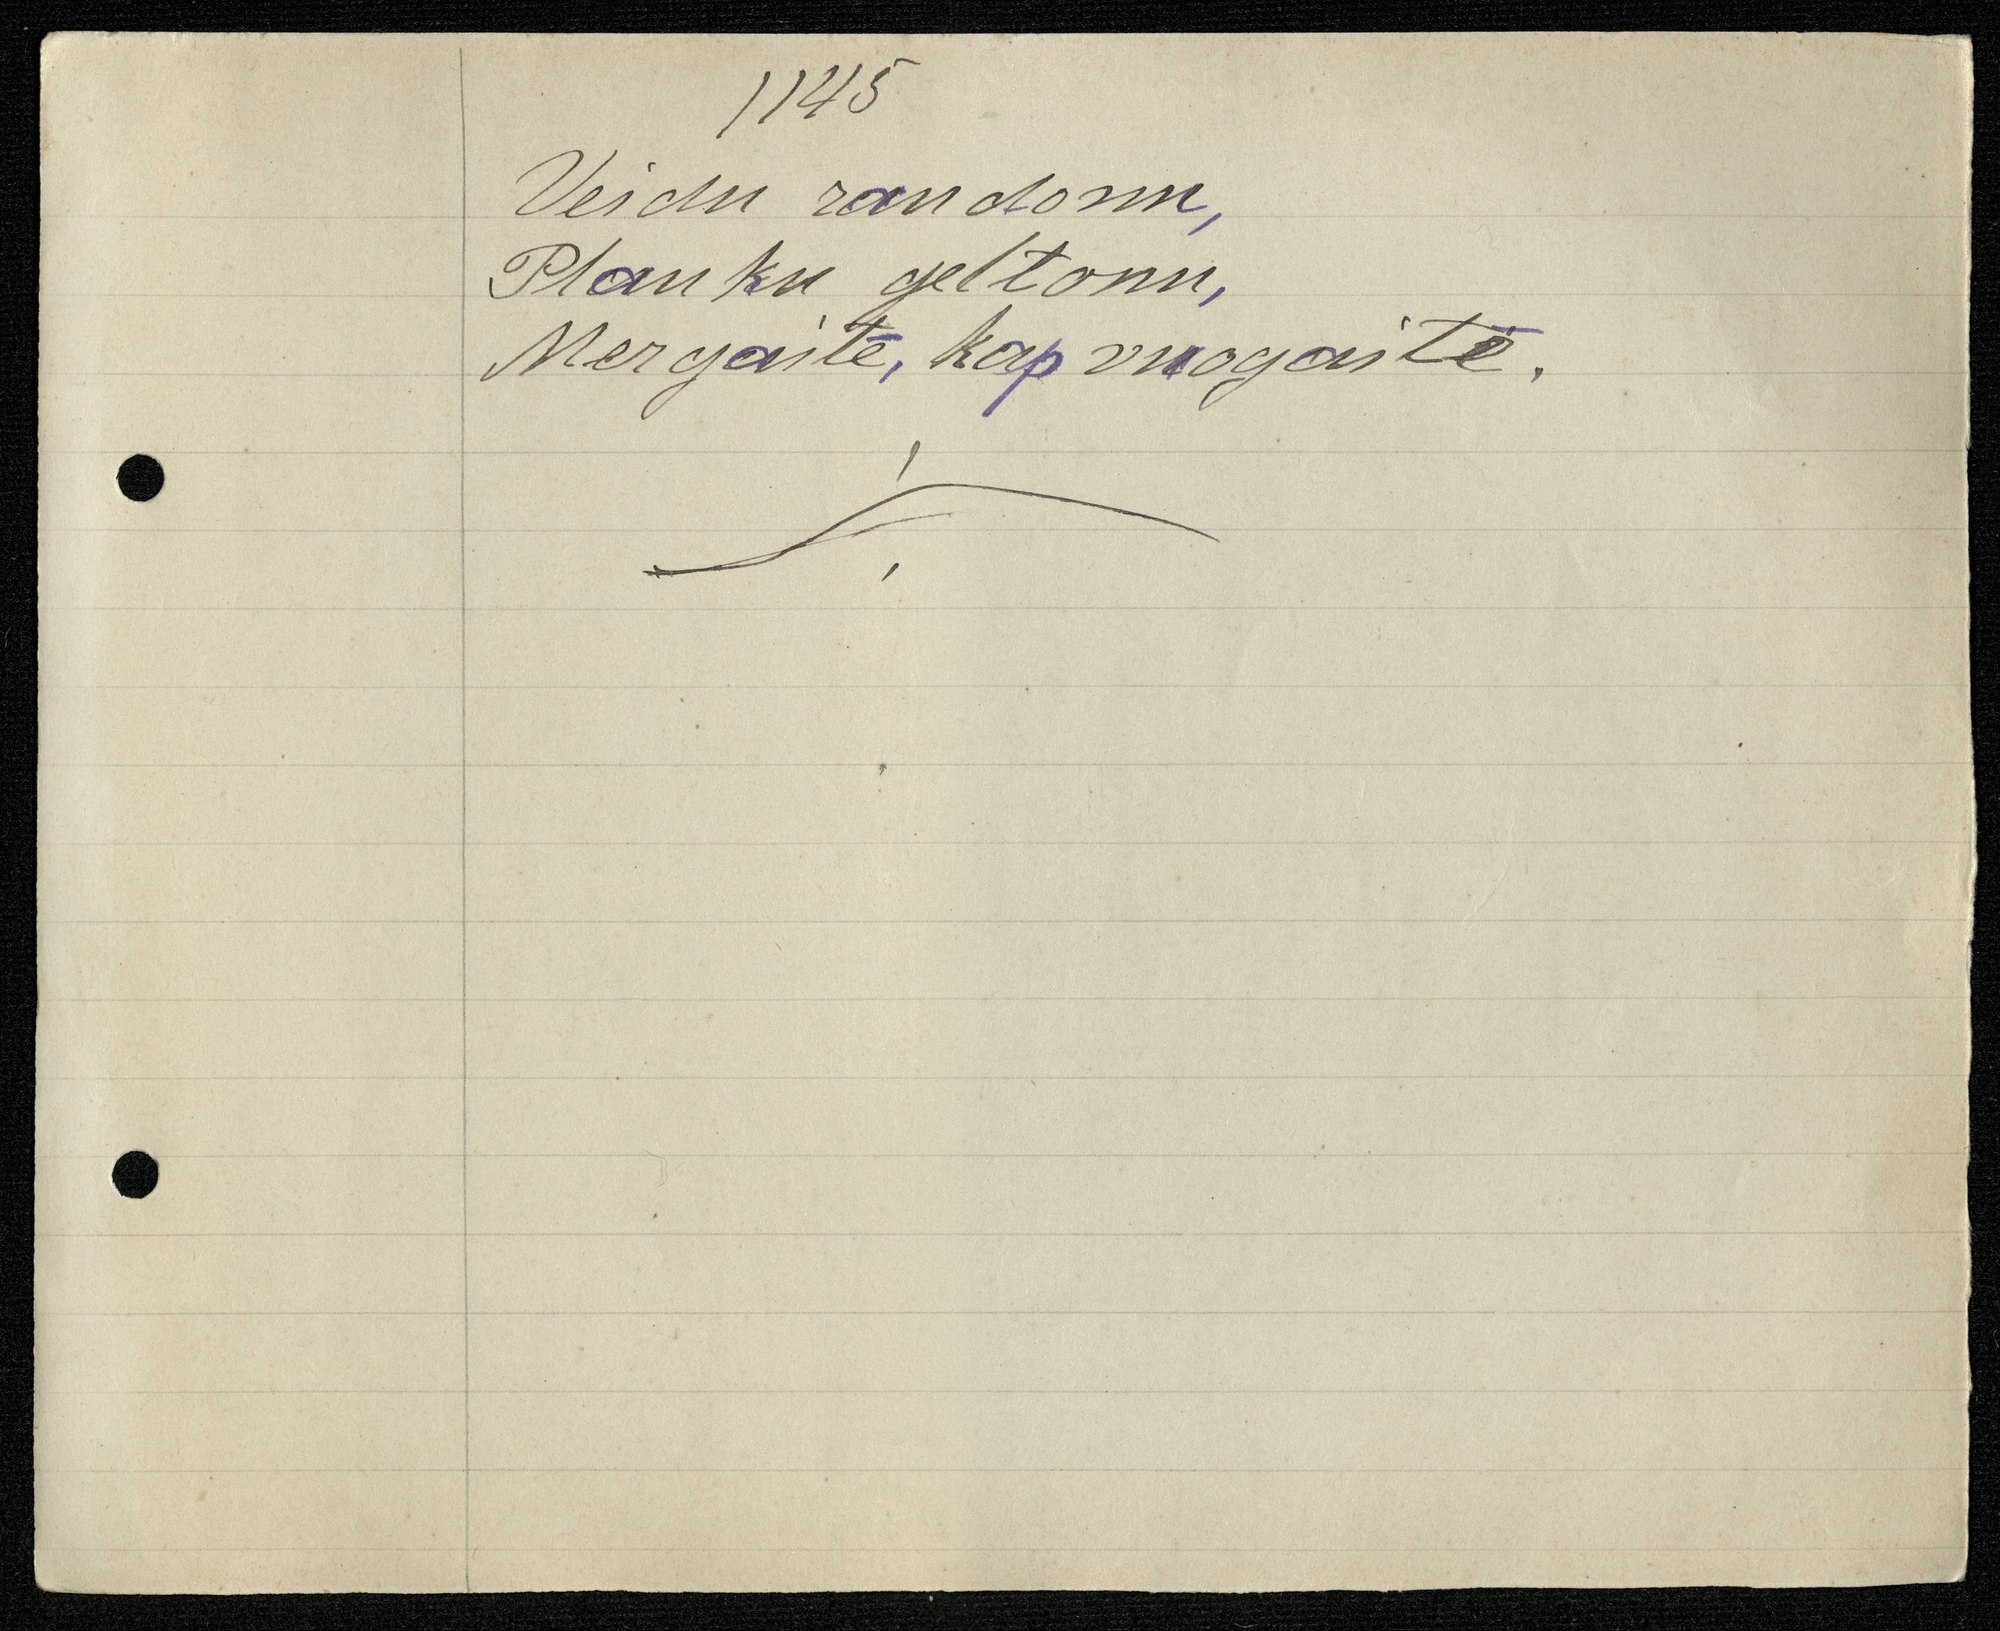 1145
Veidu raudonu,
Plauku geltonu,
Mergaitė, kap vuogaitė.